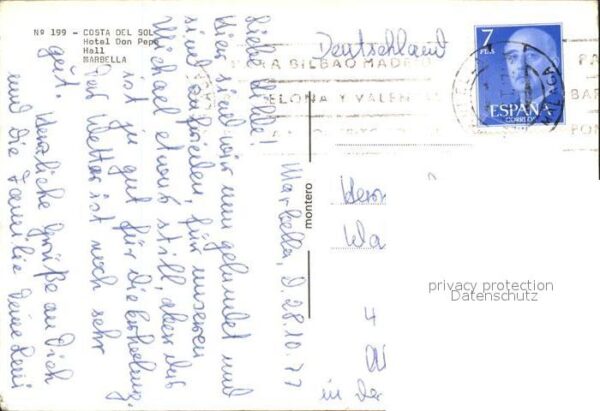 Nº 199 - COSTA DEL SOL
Hotel Don Pepe
Hall
MARBELLA
Marbella, D. 28.10.77
Liebe Hilde!
Hier sind wir nun gelandet und
sind zufrieden, für unseren
Michael etwas still, aber das
ist ja gut für die Erholung.
Das Wetter ist noch sehr
gut. Herzliche Grüße an Dich
und die Familie Deine
montero
Deutschland
A BILBAO MADRID
ELONA Y VALEN
7
PTA
ESPAÑA
CORREOS
PA
BAR
PON
Herr
Wa
4
in der
privacy protection
Datenschutz